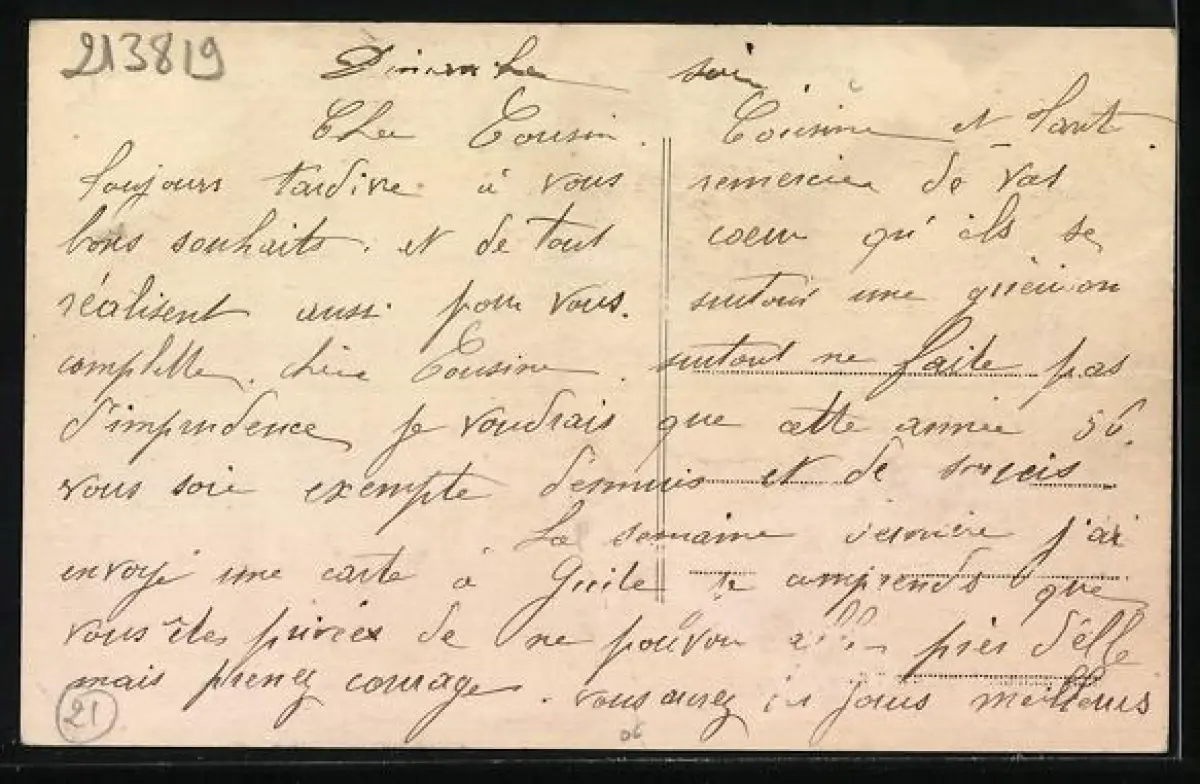 213819
Dimanche soir
Cher Cousin. Cousine et Tante.
Toujours tardive à vous remercier de vos
bons souhaits. et de tout coeur qu'ils se
réalisent aussi pour vous. surtout une guérison
complette. chère Cousine. surtout ne faite pas
d'imprudence, je voudrais que cette année
vous soie exempte d'ennuis et de soucis
La semaine dernière j'ai
envoyé une carte à je comprends que
vous êtes privées de ne pouvoir aller près d'elle
mais prenez courage. vous aurez des jours meilleurs
21